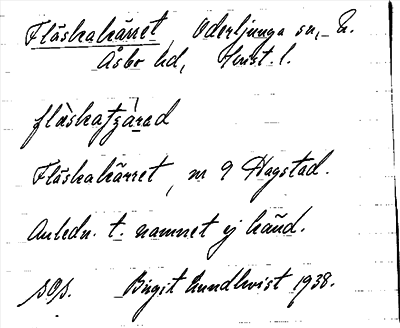 Fläskakärret, Oderljunga sn, N.
Åsbo hd, Krist. l.
Fläskakärret, nr 9 Hagstad.
Anledn. t. namnet ej känd.
sOs. Birgit Lundkvist 1938.